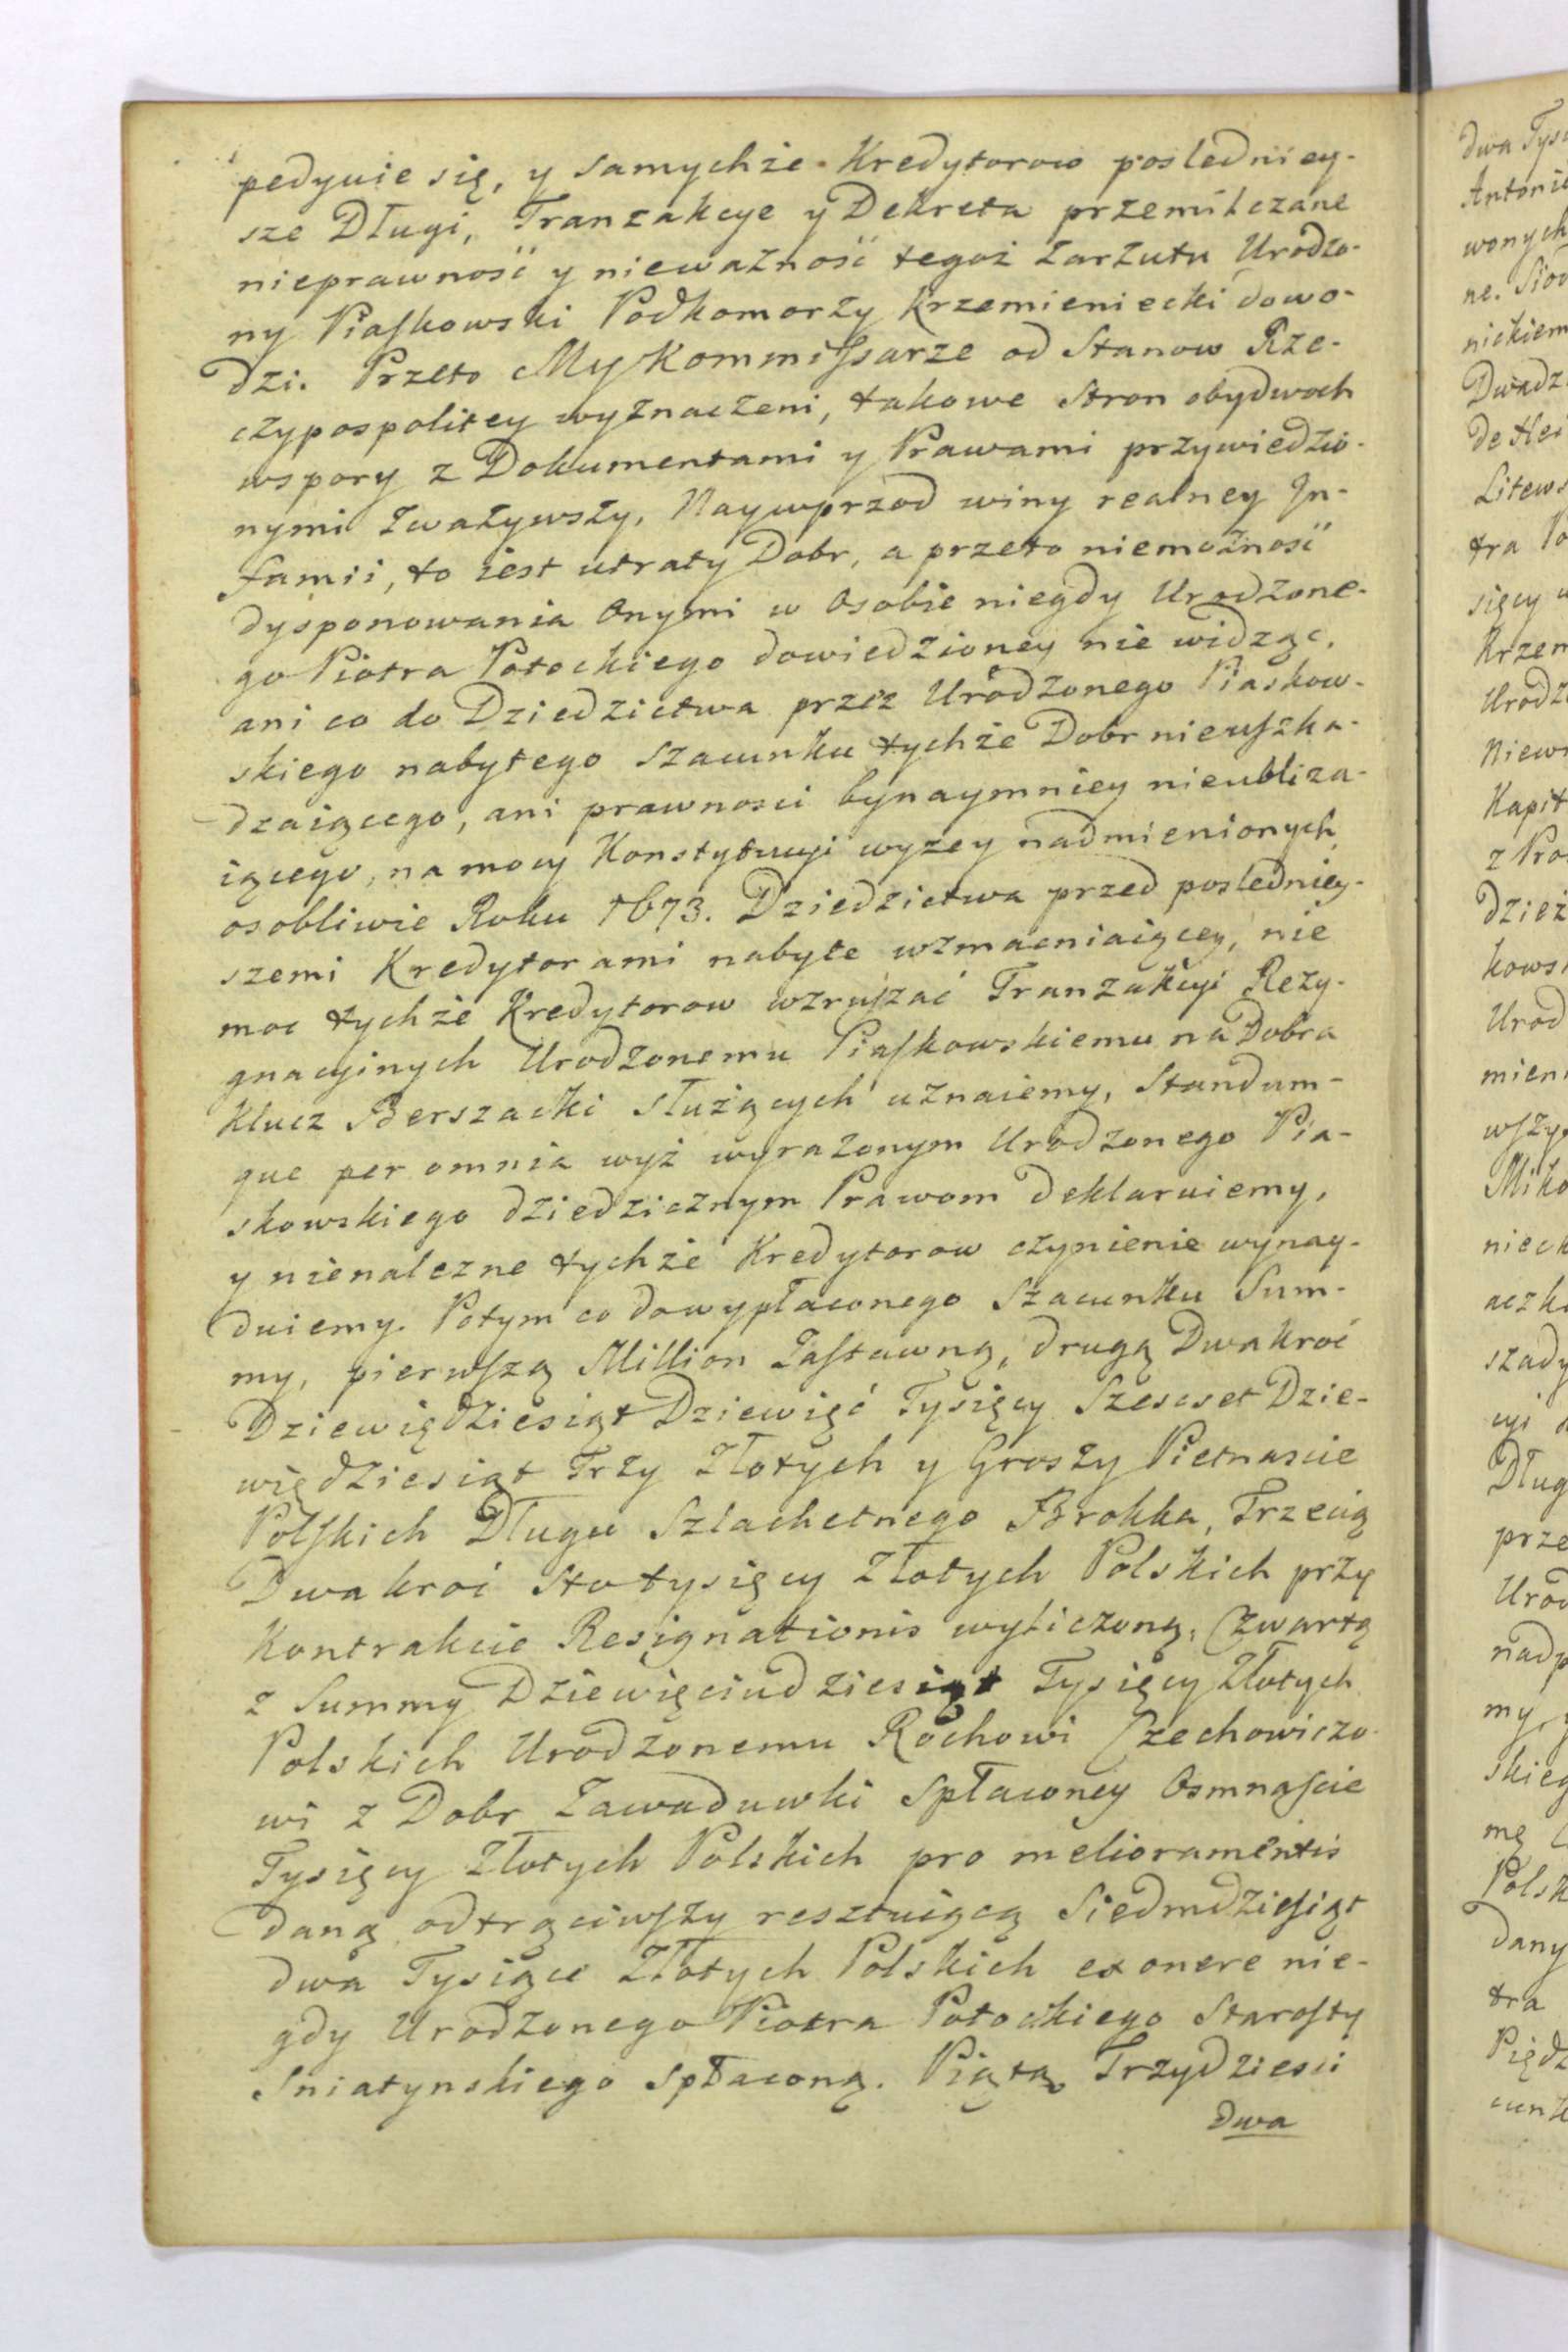 pedyuie się, y samychże Kredytorow posledniey-
sze Długi, Tranzakcye y Dekreta przemilczane
nieprawność y nieważność tegoż Zarzutu Urodzo-
ny Piaskowski Podkomorzy Krzemieniecki dowo-
dzi. Przeto My Kommissarze od Stanow Rze-
czypospolitey wyznaczeni, takowe Stron obydwoch
wspory z Dokumentami y Prawami przywiedzio-
nymi Zważywszy, Naywprzod winy realney In-
famii, to iest utraty Dobr, a przeto niemożność
dysponowania Onymi w Osobie niegdy Urodzone-
go Piotra Potockiego dowiedzioney nie widząc,
ani co do Dziedzictwa przez Urodzonego Piaskow-
skiego nabytego Szacunku tychże Dobr nieuszka-
dzaiącego, ani prawnosci bynaymniey nieubliza-
iącego, na mocy Konstytucyi wyzey nadmienionych
osobliwie Roku 1673. Dziedzictwa przed posledniey-
szemi Kredytorami nabyte wzmacniaiącey, nie
moc tychże Kredytorow wzruszać Tranzakcyi Rezy-
gnacyinych Urodzonemu Piaskowskiemu na Dobra
Klucz Berszadzki służących uznaiemy, Standum-
que per omnia wyż wyrażonym Urodzonego Pia-
skowskiego dziedzicznym Prawom deklaruiemy,
y nienalezne tychże Kredytorow czynienie wynay-
duiemy. Potym co do wypłaconego Szacunku Sum-
my, pierwszą Million Zastawną, drugą Dwakroć
Dziewiędziesiąt Dziewięć Tysięcy Szescset Dzie-
więdziesiąt Trzy Złotych y Groszy Pietnascie
Polskich Długu Szlachetnego Brokka, Trzecią
Dwakroć Stotysięcy Złotych Polskich przy
Kontrakcie Resignationis wyliczoną, Czwartą
z Summy Dziewięciudziesiąt Tysięcy Złotych
Polskich Urodzonemu Rochowi Czechowiczo-
wi z Dobr Zawaduwki Spłaconey Osmnascie
Tysięcy Złotych Polskich pro melioramentis
daną odtrąciwszy resztuiącą Siedmdziesiąt
dwa Tysiące Złotych Polskich ex onere nie-
gdy Urodzonego Piotra Potockiego Starosty
Sniatynskiego spłaconą. Piątą Trzydziesci
dwa